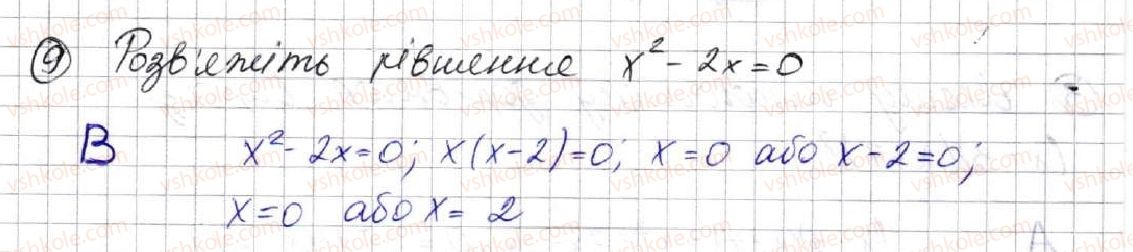 ⑨ Розв'яжіть рівняння x² - 2x = 0
В x² - 2x = 0; x(x-2) = 0; x = 0 або x - 2 = 0;
x = 0 або x = 2